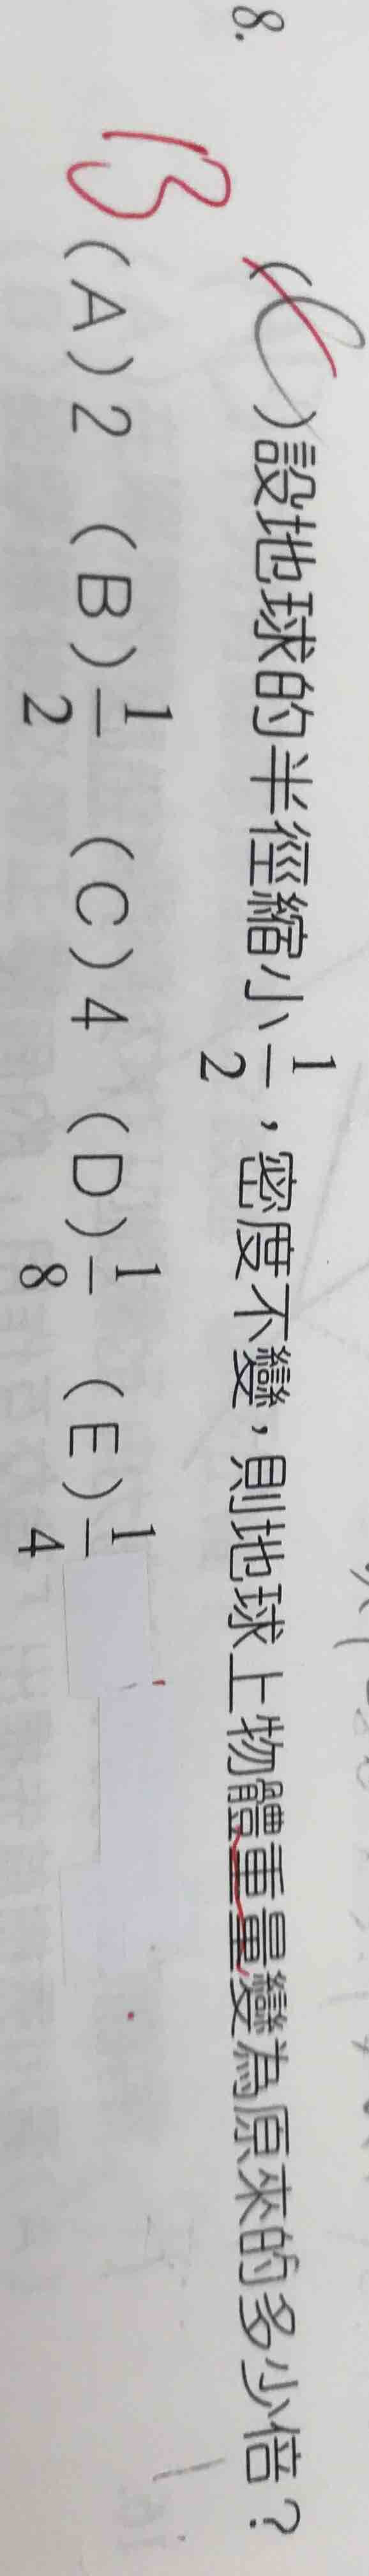 8. (C)設地球的半徑縮小1/2，密度不變，則地球上物體重量變為原來的多少倍？
B (A)2 (B)1/2 (C)4 (D)1/8 (E)1/4